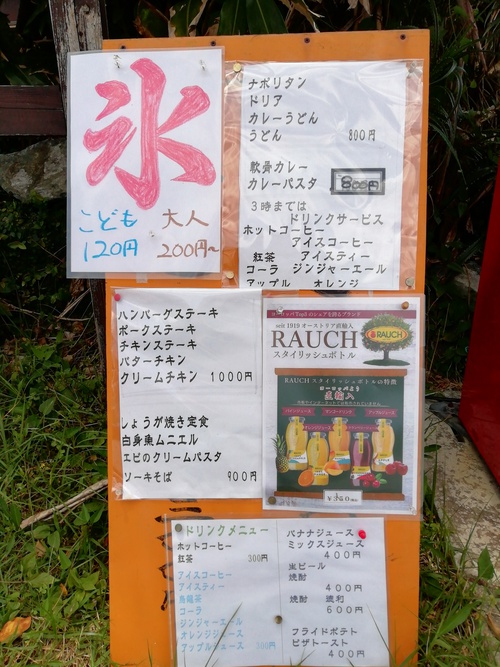 氷
こども 大人
120円 200円~
ナポリタン
ドリア
カレーうどん
うどん 800円
軟骨カレー
カレーパスタ 800円
3時までは
ドリンクサービス
ホットコーヒー
アイスコーヒー
紅茶 アイスティー
コーラ ジンジャーエール
アップル オレンジ
ハンバーグステーキ
ポークステーキ
チキンステーキ
バターチキン
クリームチキン 1000円
しょうが焼き定食
白身魚ムニエル
エビのクリームパスタ
ソーキそば 900円
ヨーロッパTop3のシェアを誇るブランド
seit 1919 オーストリア直輸入
RAUCH
スタイリッシュボトル
RAUCH
RAUCH スタイリッシュボトルの特徴
ヨーロッパより
直輸入
ドリンクメニュー
ホットコーヒー
紅茶 300円
アイスコーヒー
アイスティー
烏龍茶
コーラ
ジンジャーエール
オレンジジュース
アップルジュース 300円
バナナジュース
ミックスジュース
400円
生ビール
焼酎
400円
焼酎 琉球
600円
フライドポテト
ピザトースト
400円